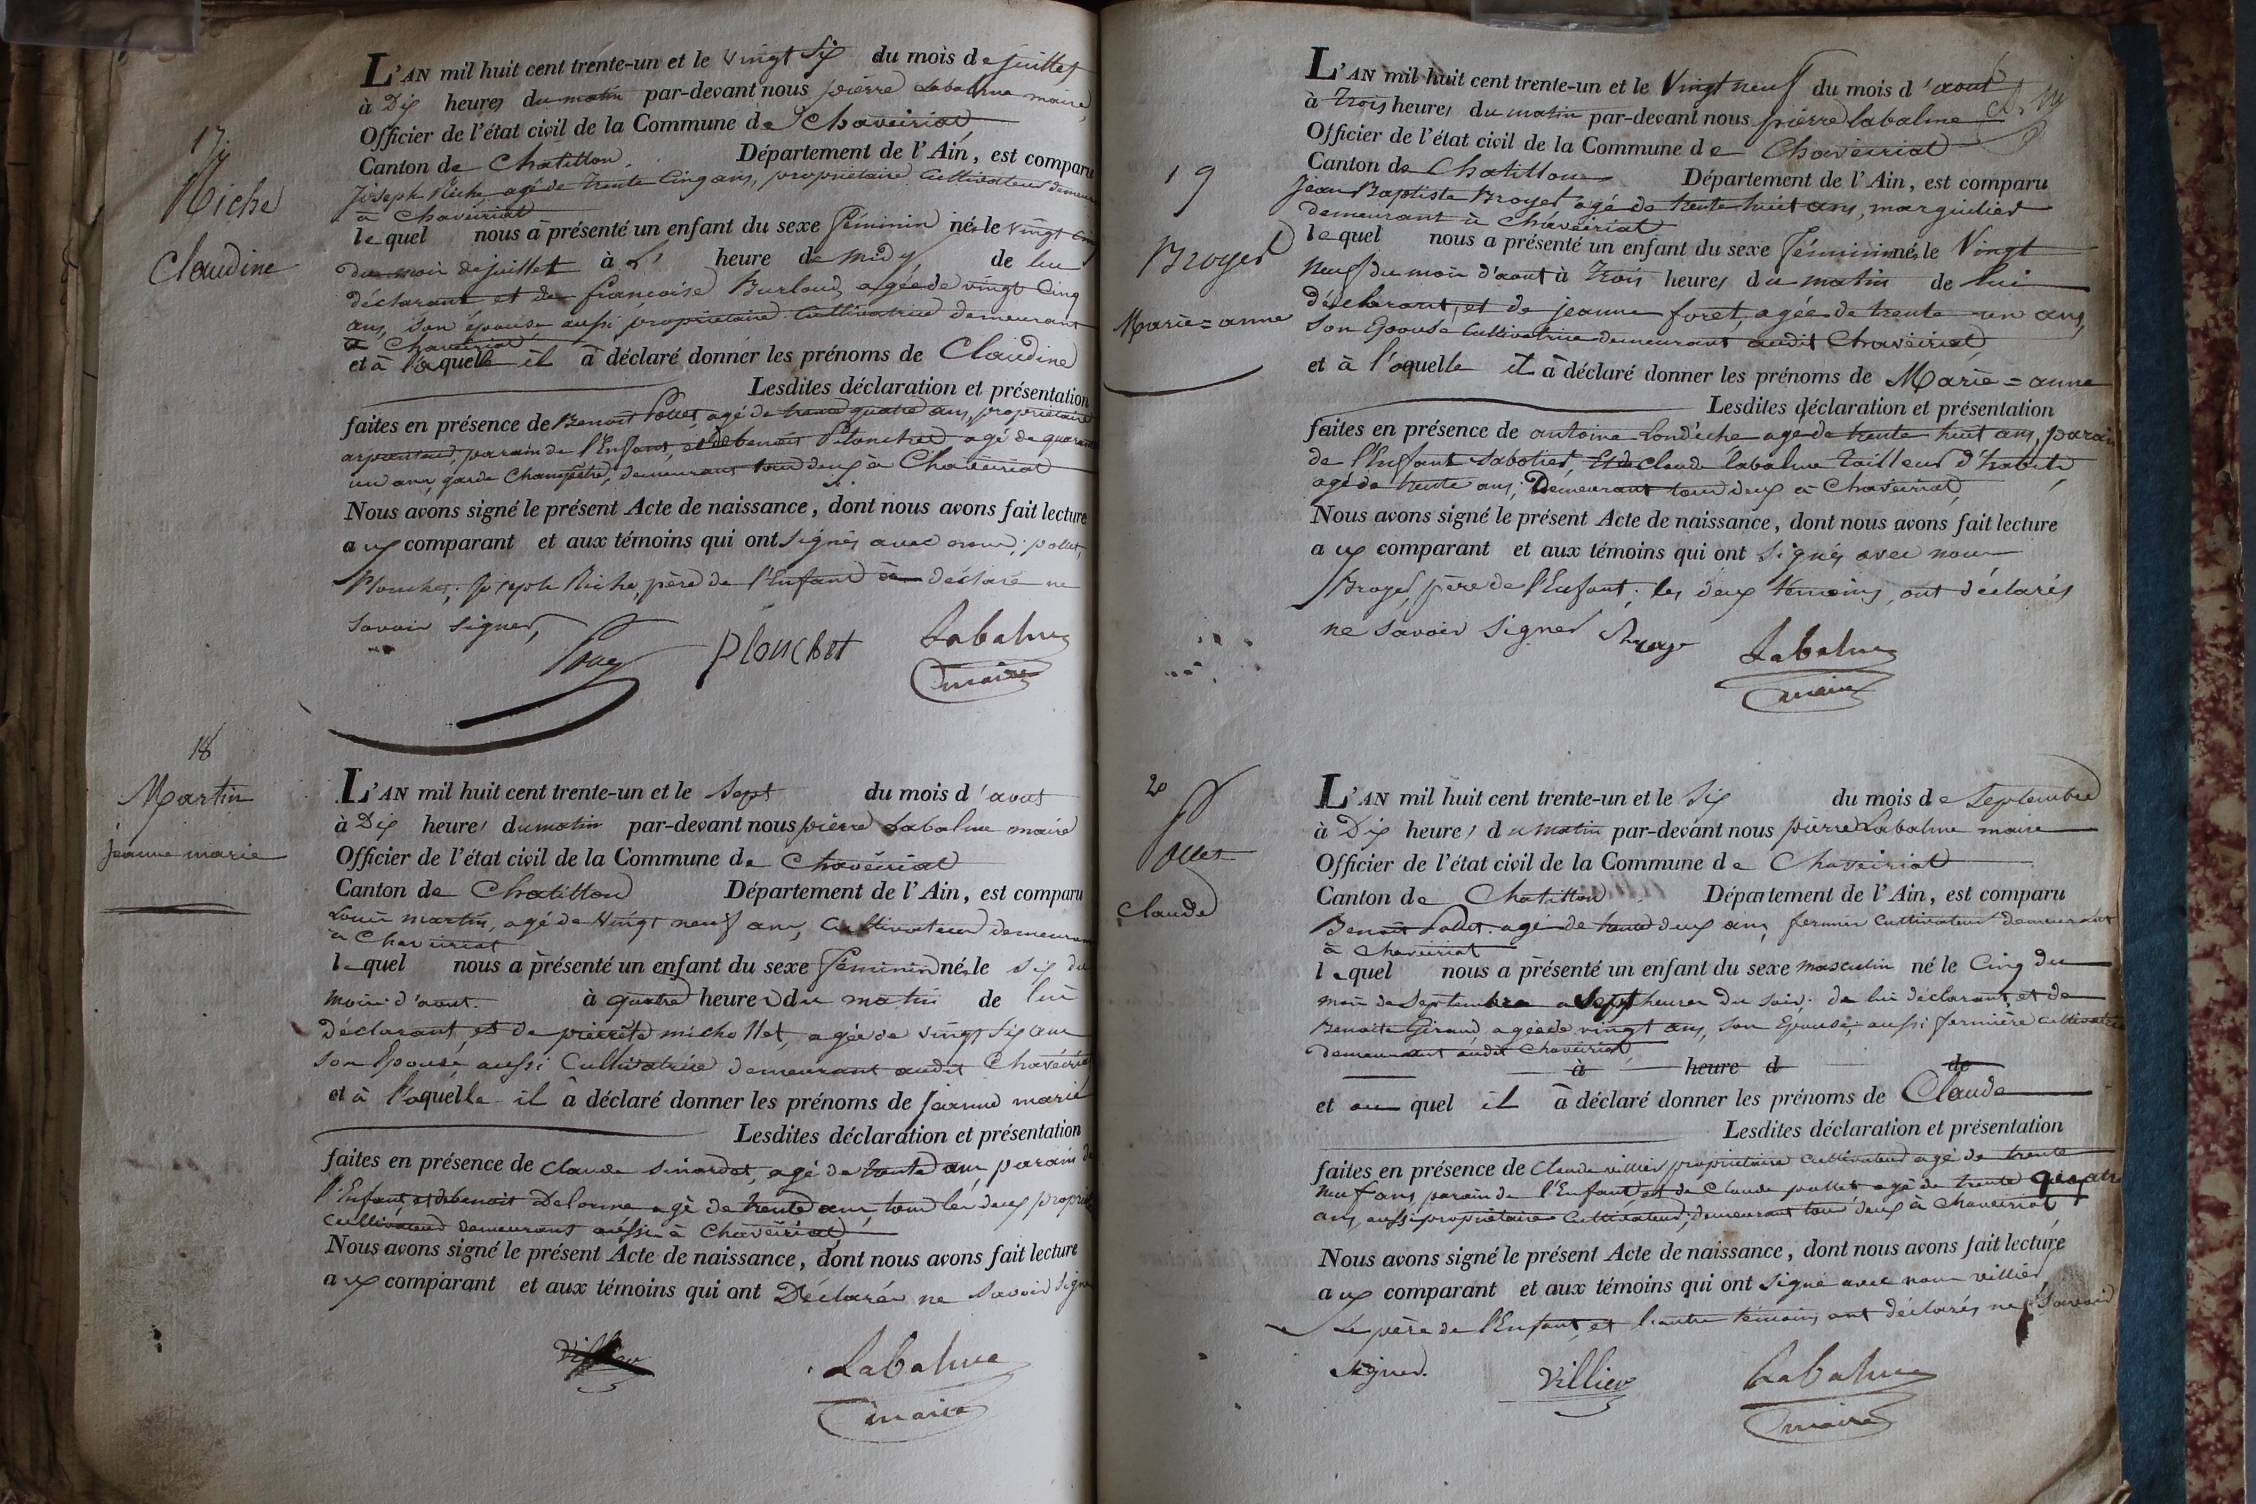 17
Riche
Claudine
L'AN mil huit cent trente-un et le vingt Six du mois de juillet
à Dix heures du matin par-devant nous pierre Labalme maire
Officier de l'état civil de la Commune de Chaveiriat
Canton de Chatillon. Département de l'Ain, est comparu
Joseph Riche agé de trente Cinq ans, propriétaire Cultivateur demeurant
à Chaveiriat
lequel nous à présenté un enfant du sexe féminin né le vingt cinq
du mois de juillet à L' heure de midy de lui
déclarant et de francoise Burloud agée de vingt Cinq
ans, son épouse aussi propriétaire Cultivatrice demeurant
à Chaveiriat
et à laquelle il à déclaré donner les prénoms de Claudine
Lesdites déclaration et présentation
faites en présence de Benoit Pollet, agé de trente quatre ans, propriétaire
parain de l'Enfant, et de benoit Plonchet agé de quarante
un ans, garde Champêtre, demeurant tous deux à Chaveiriat
Nous avons signé le présent Acte de naissance, dont nous avons fait lecture
aux comparant et aux témoins qui ont signés avec nous; pollet,
Plonchet; Joseph Riche, père de l'Enfant à déclaré ne
savoir signer,
Plonchet Labalme
maire
18
Martin
jeanne marie
L'AN mil huit cent trente-un et le sept du mois d'aout
à Dix heures du matin par-devant nous pierre Labalme maire
Officier de l'état civil de la Commune de Chaveiriat
Canton de Chatillon Département de l'Ain, est comparu
Louis martin, agé de Vingt neuf ans, Cultivateur demeurant
à Chaveiriat
lequel nous a présenté un enfant du sexe féminin né le six du
mois d'aout. à quatre heures du matin de lui
Déclarant, et de pierrette michollet, agée de vingt Six ans
son Epouse aussi Cultivatrice demeurant audit Chaveiriat
et à laquelle il à déclaré donner les prénoms de jeanne marie
Lesdites déclaration et présentation
faites en présence de Claude Sinardet, agé de trente ans, parain de
l'Enfant, et de benoit Delorme agé de trente ans, tous les deux propriétaires
Cultivateurs demeurant aussi à Chaveiriat
Nous avons signé le présent Acte de naissance, dont nous avons fait lecture
aux comparant et aux témoins qui ont Déclarés ne savoir signer
Labalme
maire
19
Broyer
Marie=anne
L'AN mil huit cent trente-un et le Vingt neuf du mois d'aout
à Trois heures du matin par-devant nous pierre labalme
Officier de l'état civil de la Commune de Chaveiriat
Canton de Chatillon Département de l'Ain, est comparu
Jean Baptiste Broyer agé de trente huit ans, marguilier
demeurant à Chaveiriat
lequel nous a présenté un enfant du sexe féminin né le Vingt
neuf du mois d'aout à Trois heures du matin de lui
déclarant, et de jeanne foret, agée de trente un ans,
Son Epouse Cultivatrice demeurant audit Chaveiriat
et à laquelle il à déclaré donner les prénoms de Marie=anne
Lesdites déclaration et présentation
faites en présence de antoine Londiche agé de trente huit ans, parain
de l'Enfant Sabotier, Et de Claude labalme Tailleur d'habits
agé de trente ans; Demeurant tous deux à Chaveiriat
Nous avons signé le présent Acte de naissance, dont nous avons fait lecture
aux comparant et aux témoins qui ont signés avec nous
Broyer, père de l'Enfant; les deux témoins, ont déclarés
ne savoir signer Labalme
maire
20
Pollet
Claude
L'AN mil huit cent trente-un et le Six du mois de Septembre
à Dix heures du matin par-devant nous pierre Labalme maire
Officier de l'état civil de la Commune de Chaveiriat
Canton de Chatillon Département de l'Ain, est comparu
Benoit Pollet agé de trente deux ans, fermier Cultivateur demeurant
à Chaveiriat
lequel nous a présenté un enfant du sexe masculin né le Cinq du
mois de Septembre a Sept heures du soir; de lui déclarant, et de
Benoite Giraud, agée de vingt ans, son Epouse, aussi fermière cultivatrice
demeurant audit Chaveiriat
à heure d de
et au quel il à déclaré donner les prénoms de Claude
Lesdites déclaration et présentation
faites en présence de Claude villier propriétaire Cultivateur agé de trente
neuf ans, parain de l'Enfant et de Claude pollet agé de trente quatre
ans, aussi propriétaire Cultivateur; demeurant tous deux à Chaveiriat
Nous avons signé le présent Acte de naissance, dont nous avons fait lecture
aux comparant et aux témoins qui ont signé avec nous villier,
Le père de l'Enfant, et l'autre témoin, ont déclarés ne savoir
signer. Villier Labalme
maire